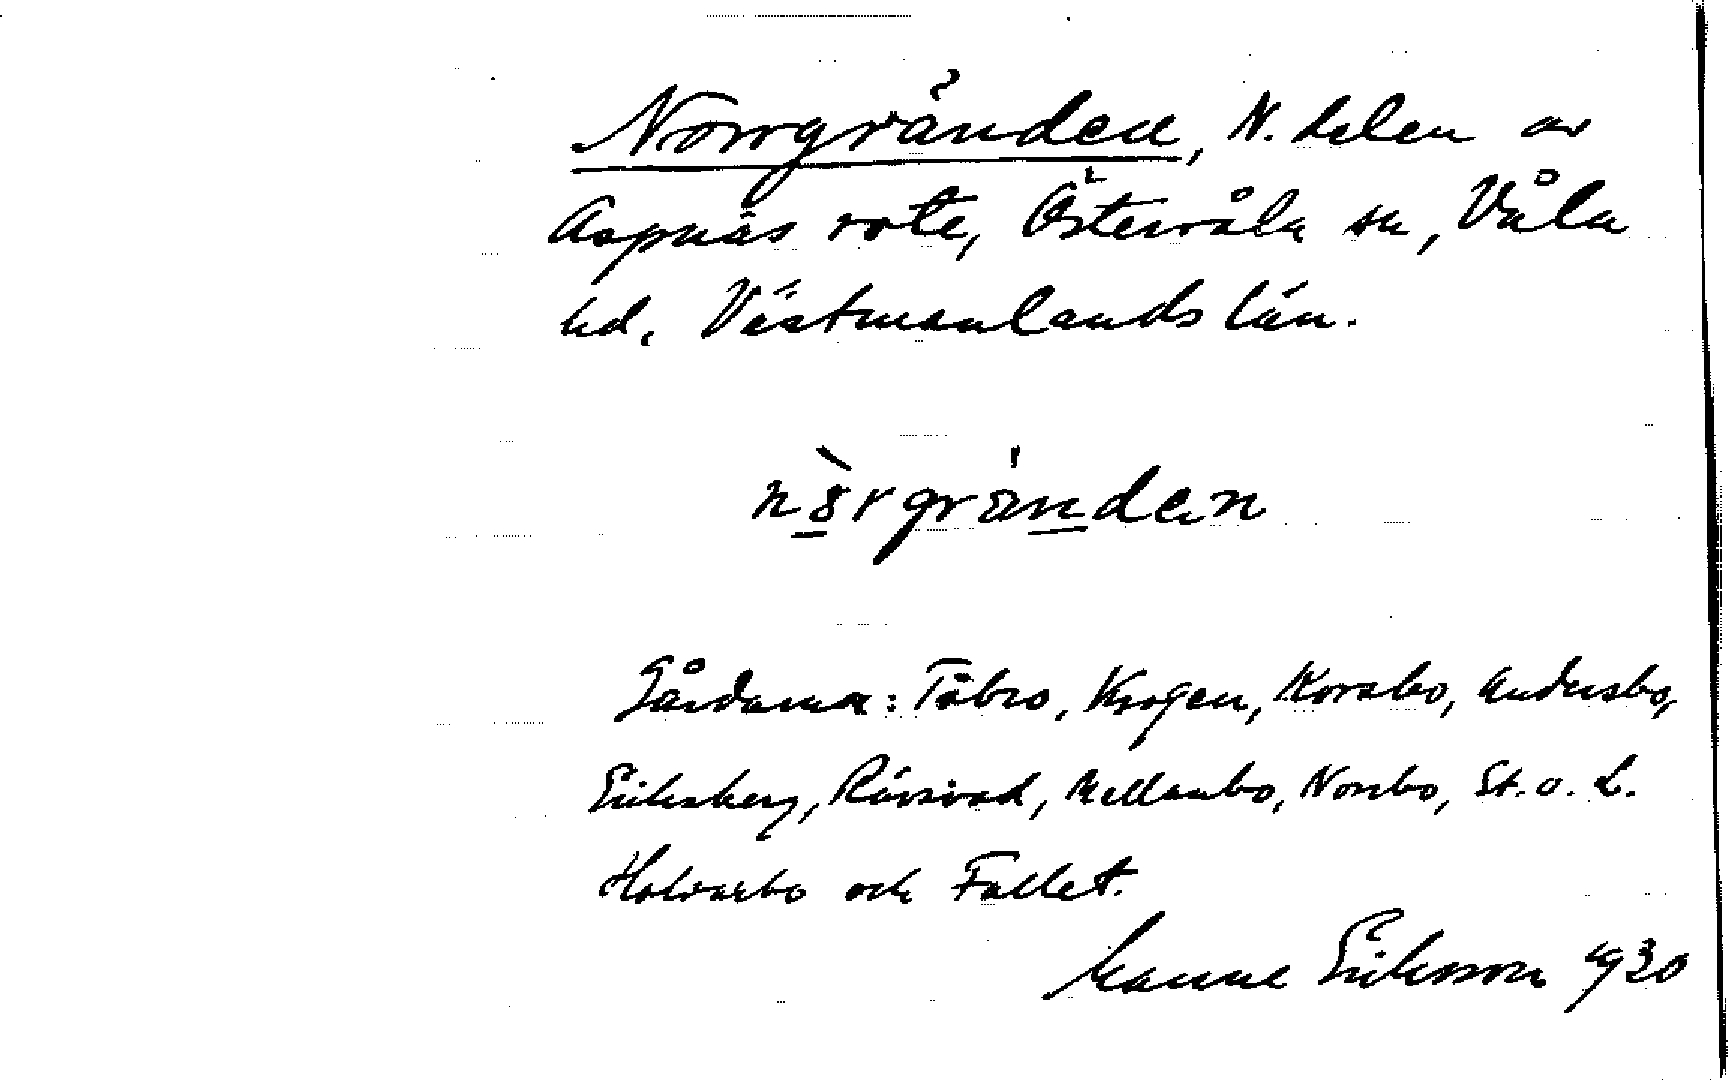 Norrgränden, N. delen av
Aspnäs rote, Östervåla sn, Våla
hd. Västmanlands län.
nòrgränden
Gårdarna: Tåbro, Krogen, Korsbo, Andersbo,
Eriksberg, Rävsvad, Mellanbo, Norrbo, St. o. L.
Holvarbo och Fallet.
Manne Eriksson 1930